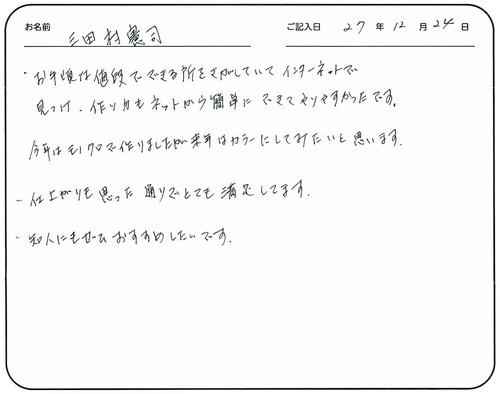 お名前 三田村憲司 ご記入日 27年12月24日
・お手頃な値段でできる所をさがしていてインターネットで
見つけ、作り方もネットから簡単にできてやりやすかったです。
今年はモノクロで作りましたが来年はカラーにしてみたいと思います。
- 仕上がりも思った通りでとても満足してます。
・知人にもぜひおすすめしたいです。